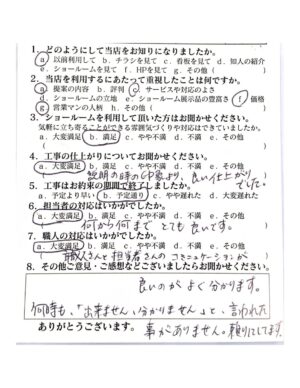 1. どのようにして当店をお知りになりましたか。
a 以前利用して b. チラシを見て c. 看板を見て d. 知人の紹介
e. ショールームを見て f. HPを見て g. その他 ( )
2. 当店を利用するにあたって重視したことは何ですか。
a 提案の内容 b. 評判 c サービスや対応のよさ
d. ショールームの立地 e. ショールーム展示品の豊富さ f 価格
g 営業マンの人柄 h. その他 ( )
3. ショールームを利用して頂いた方はお聞かせください。
気軽に立ち寄ることができる雰囲気づくりや対応はできていましたか。
a. 大変満足 b. 満足 c. やや不満 d. 不満 e. その他
( )
4. 工事の仕上がりについてお聞かせください。
a. 大変満足 b. 満足 c. やや不満 d. 不満 e. その他
説明の時の印象より、良い仕上がりでした。
5. 工事はお約束の期間で終了しましたか。
a. 予定より早い b. 予定通り c. やや遅れた d. 大変遅れた
6. 担当者の対応はいかがでしたか。
a. 大変満足 b. 満足 c. やや不満 d. 不満 e. その他
何から何まで とても良いです。
7. 職人の対応はいかがでしたか。
a. 大変満足 b. 満足 c. やや不満 d. 不満 e. その他
職人さんと担当者さんのコミュニケーションが
8. その他ご意見・ご感想などございましたらお聞かせください。
良いのがよく分かります。
何時も、「お来ません、分かりません」と、言われた
ありがとうございます。
事がありません。頼りにしてます。